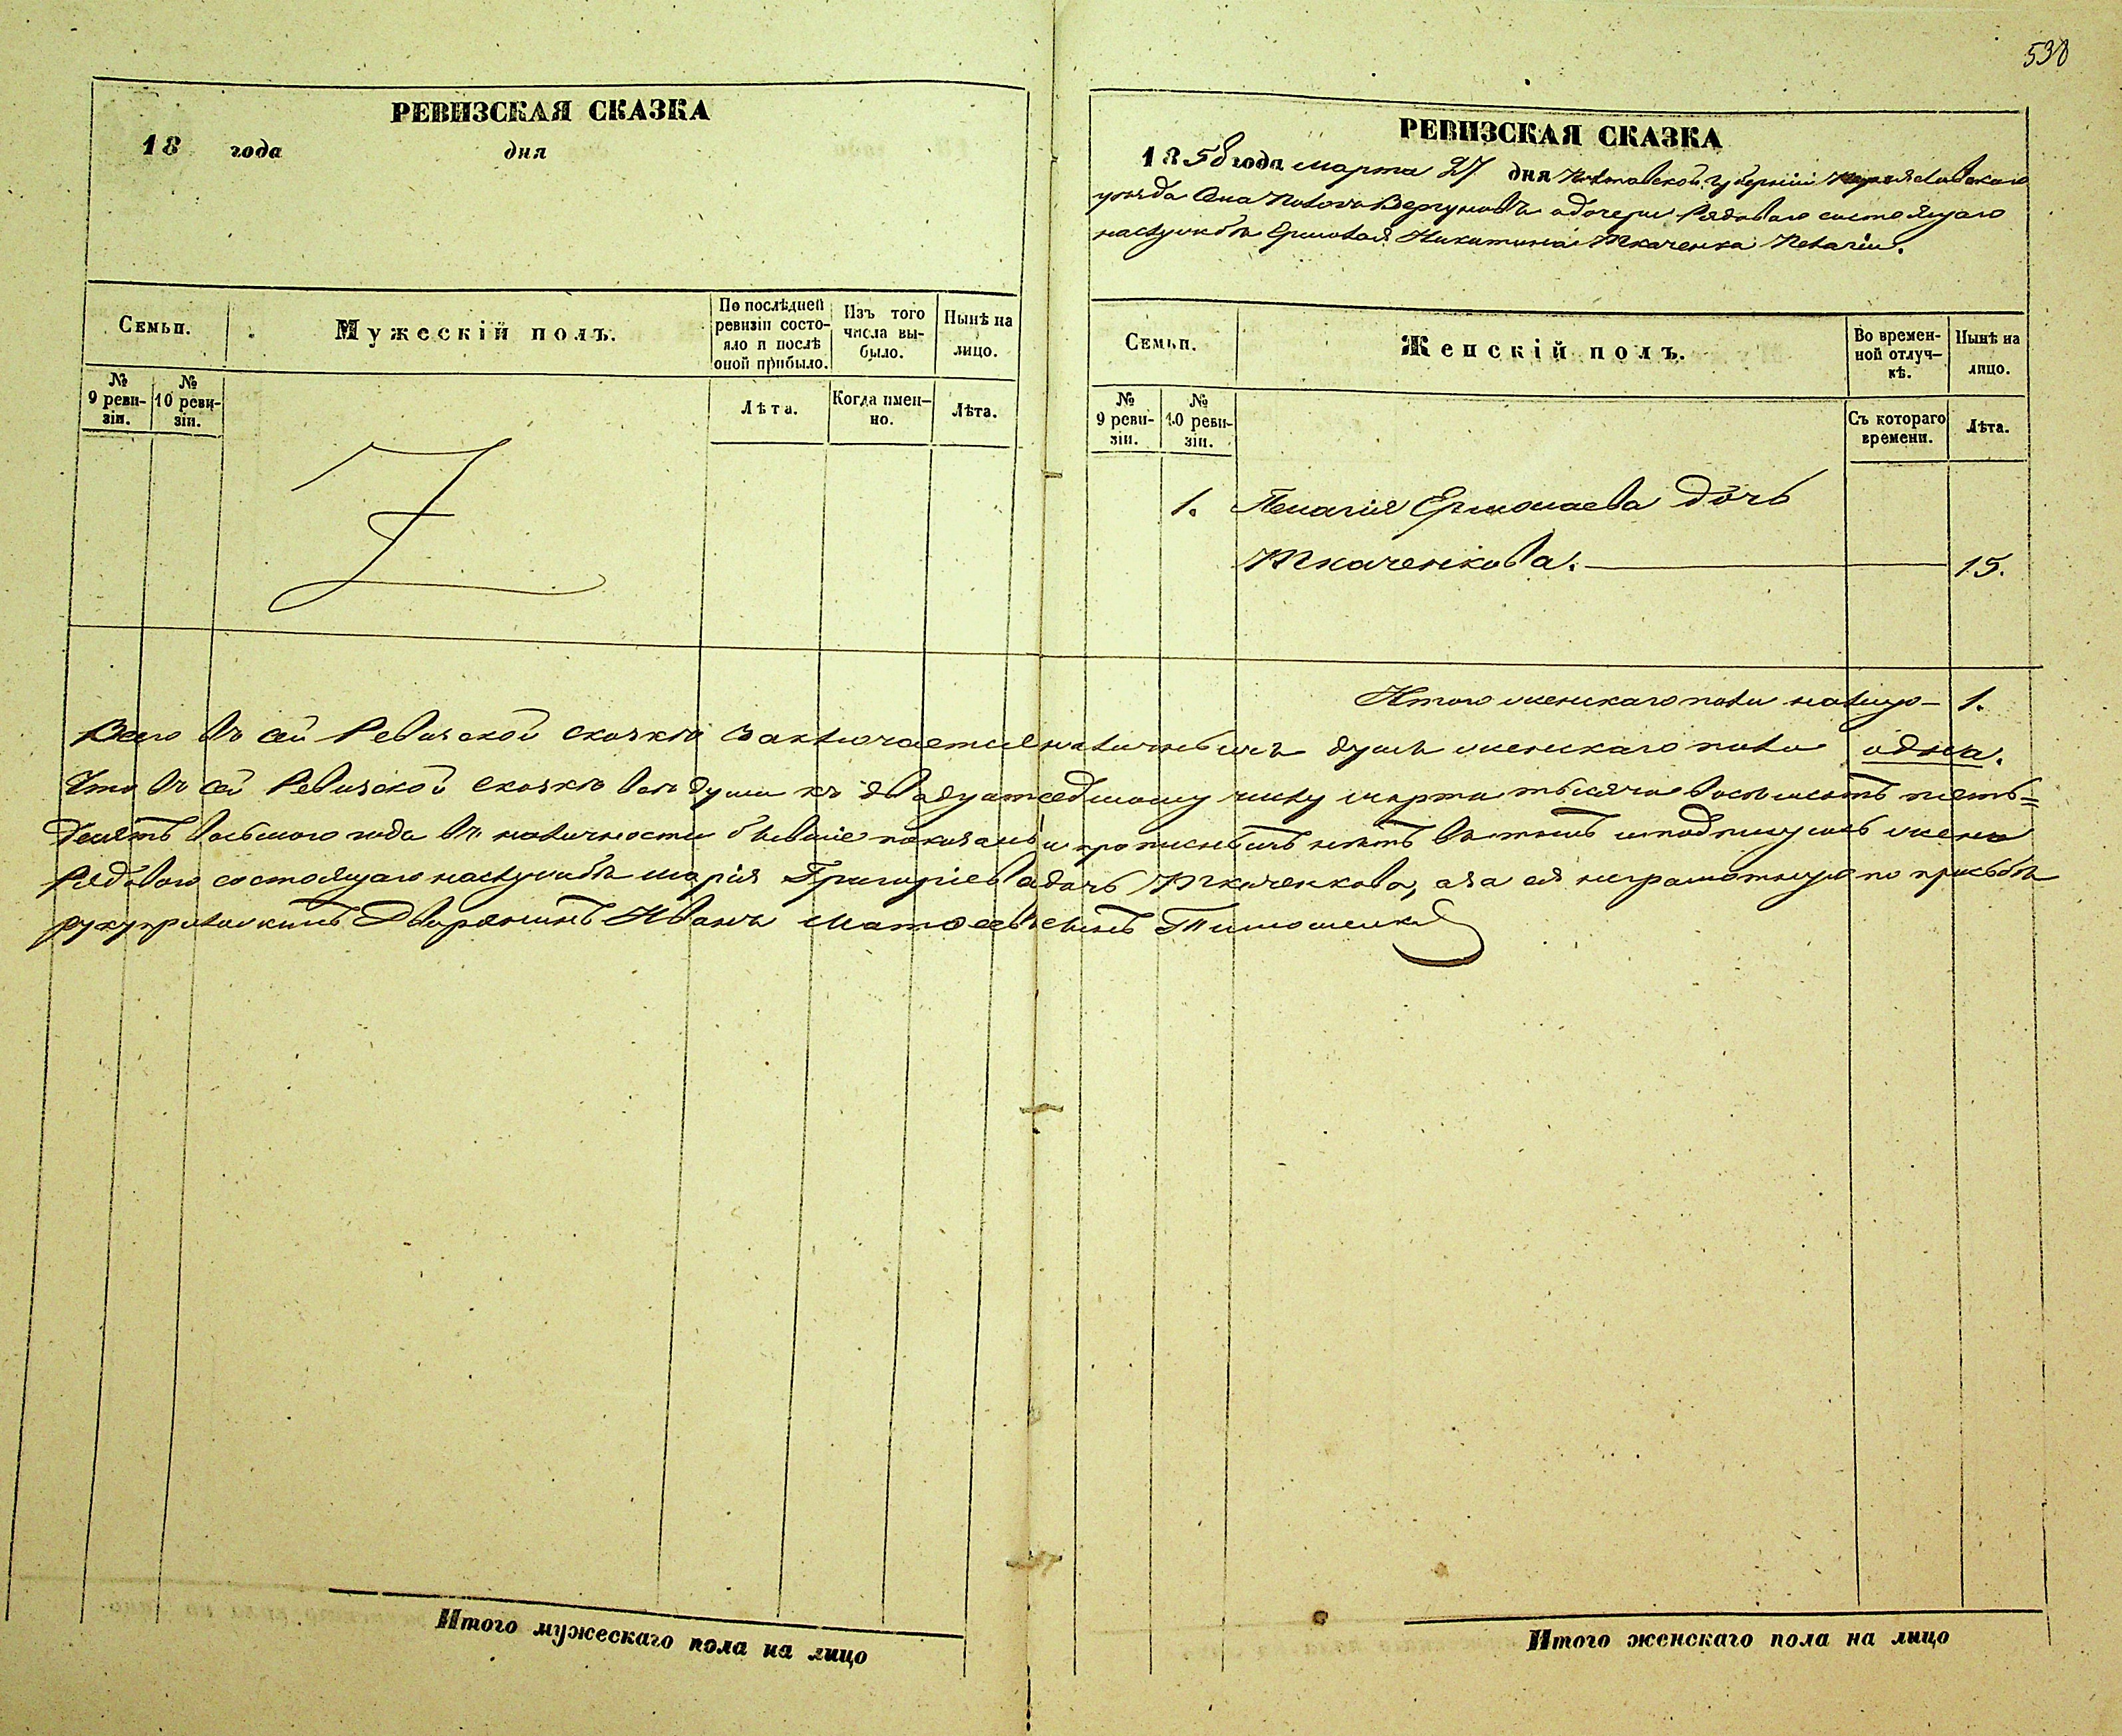 538
РЕВИЗСКАЯ СКАЗКА
18 года дня
Семьи.
Мужескій полъ.
По послѣдней ревизіи состо-
яло и послѣ оной прибыло.
Изъ того числа вы-
было.
Нынѣ на лицо.
№ 9 реви-
зіи.
№ 10 реви-
зіи.
Лѣта.
Когда имен-
но.
Лѣта.
РЕВИЗСКАЯ СКАЗКА
1858 года марта 27 дня Полтавской губерніи Переяславскаго
уѣзда Села Полого Вергуновъ о дочери Рядоваго состоящаго
наслужбѣ Ермолая Никитина Ткаченка Пелагіи.
Семьи.
Женскій полъ.
Во времен-
ной отлуч-
кѣ.
Нынѣ на лицо.
№ 9 реви-
зіи.
№ 10 реви-
зіи.
Съ котораго времени.
Лѣта.
1. Пелагія Ермолаева дочь
Ткаченкова. 15.
Итого женскаго пола налицо 1.
Всего въ сей Ревизской сказкѣ заключается наличныхъ душъ женскаго пола одна.
Что въ сей Ревизской сказкѣ всѣ души къ двадцатседмому числу марта тысяча восемьсотъ пять=
десятъ восьмого года въ наличности бывшіе показаны и прописныхъ нѣтъ вътомъ иподписуюсь жена
Рядоваго состоящаго наслужбѣ Марія Григоріева дочь Ткаченкова, аза ея неграмотную по прозьбѣ
руку приложилъ Дворянинъ Иванъ Матвеевъ сынъ Тимошенко
Итого мужескаго пола на лицо
Итого женскаго пола на лицо